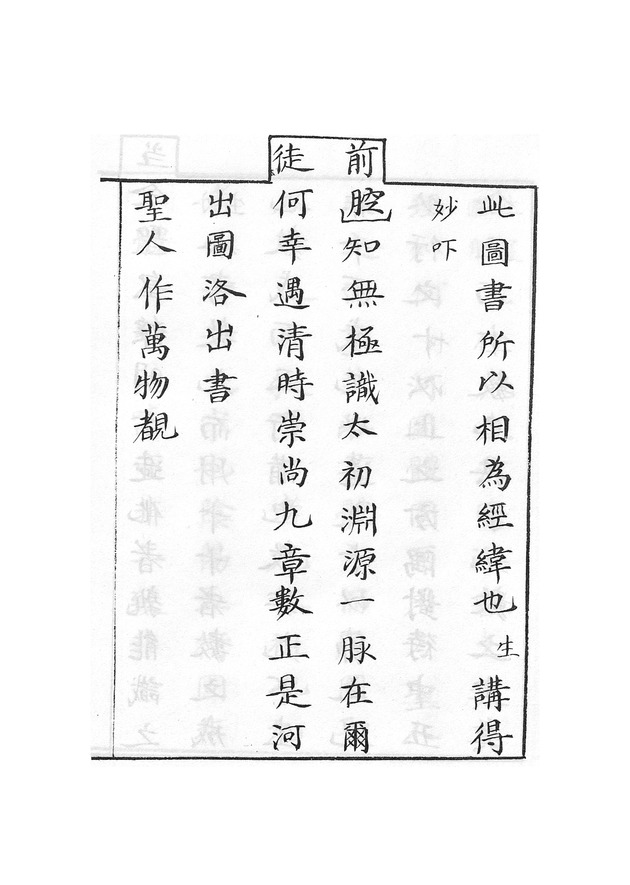 此圖書所以相為經緯也生講得
妙吓
前腔知無極識太初淵源一脉在爾
徒何幸遇清時崇尚九章數正是河
出圖洛出書
聖人作萬物覩